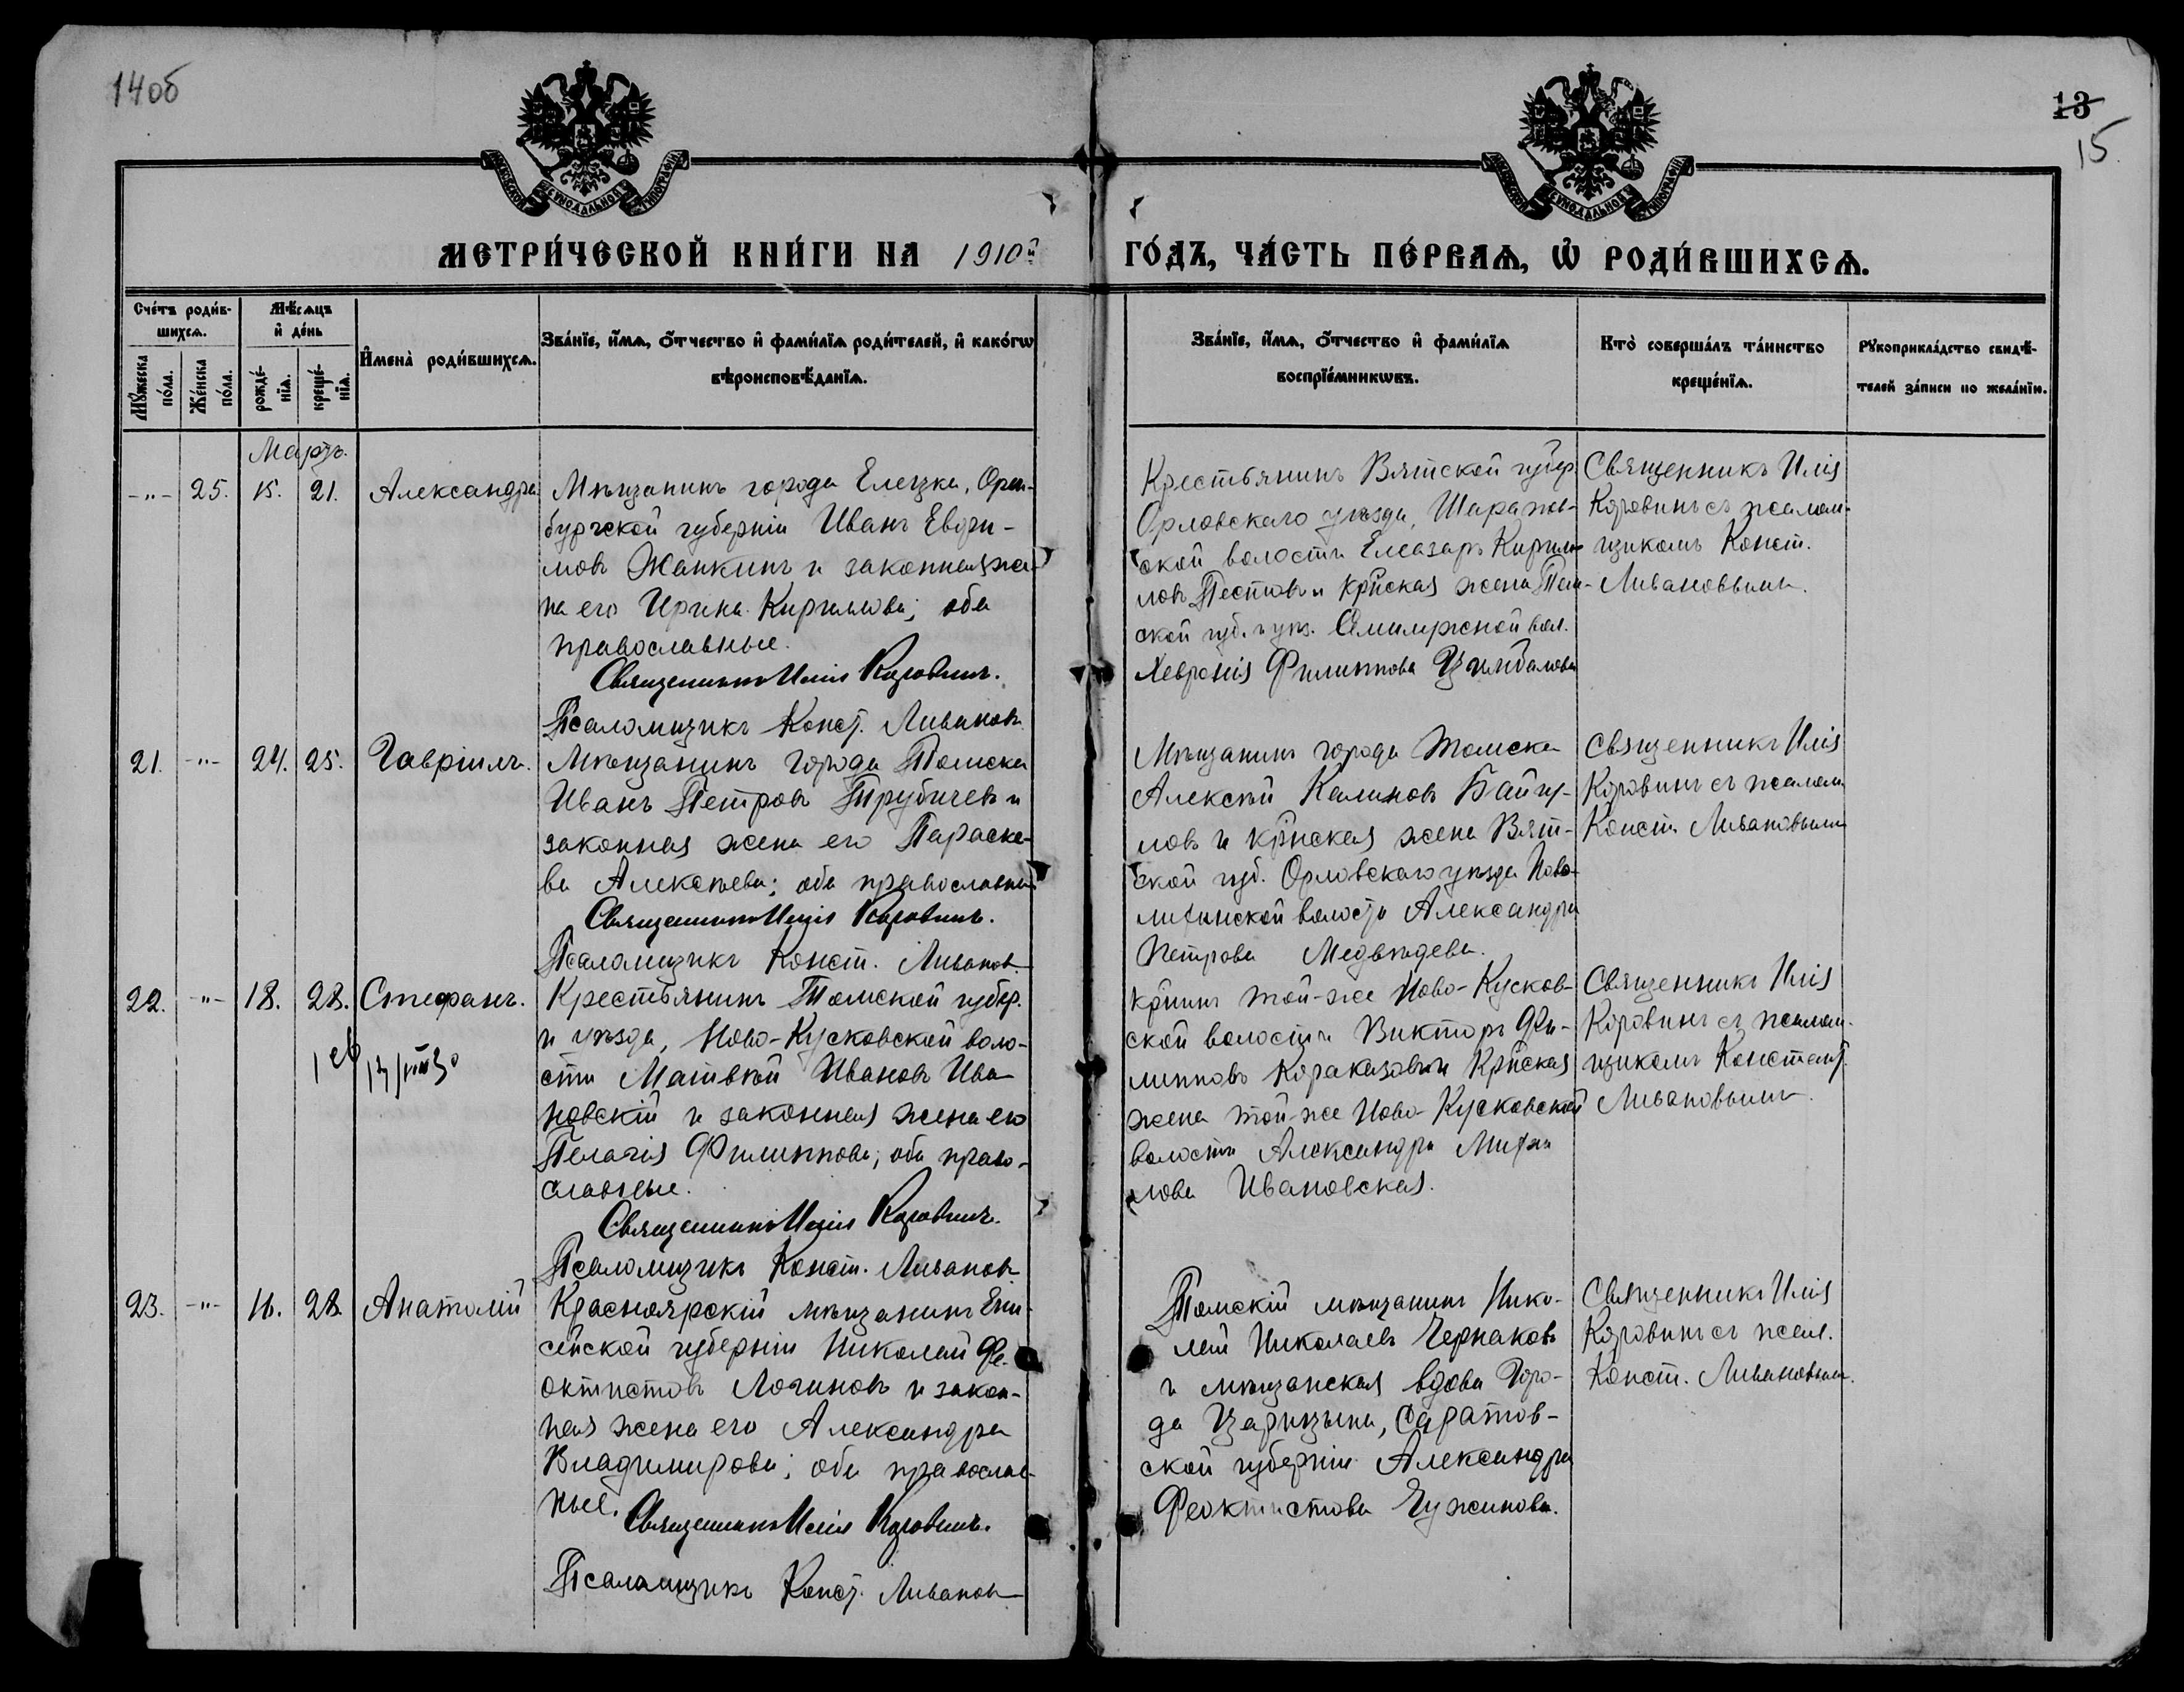 14об
13
15.
МОСКОВСКОЙ СѴНОДАЛЬНОЙ ТИПОГРАФІИ
МОСКОВСКОЙ СѴНОДАЛЬНОЙ ТИПОГРАФІИ
МЕТРИ́ЧЕСКОЙ КНИ́ГИ НА 1910й
ГО́ДЪ, ЧА́СТЬ ПЕ́РВАЯ, Ѽ РОДИ́ВШИХСЯ.
Сче́тъ роди́в-
шихся.
Мꙋ́жеска
по́ла.
Же́нска
по́ла.
Мѣ́сяцъ
и҆ де́нь
рожде́-
нїя.
креще́-
нїя.
И҆мена̀ роди́вшихся.
Зва́нїе, и҆́мя, ѻ҆́тчество и҆ фами́лїя роди́телей, и҆ како́гѡ
вѣроисповѣ́данїя.
Зва́нїе, и҆́мя, ѻ҆́тчество и҆ фами́лїя
воспрїе́мникѡвъ.
Кто̀ соверша́лъ та́инство
креще́нїя.
Рꙋкоприкла́дство свидѣ́-
телей за́писи по жела́нїю.
Мартъ.
-"- 25. 15. 21. Александра
Мѣщанинъ города Елецка, Орен-
бургской губерніи Иванъ Евфи-
мовъ Жанкинъ и законная же-
на его Ирина Кириллова; оба
православные.
Священникъ Илія Коровинъ.
Псаломщикъ Конст. Ливановъ
Крестьянинъ Вятской губер.
Орловскаго уѣзда, Шаранов-
ской волости Елеазаръ Кирил-
ловъ Пестовъ и кр̃нская жена Том-
ской губ. и уѣз. вол.
Хевронія Филиппова Цымбалова
Священникъ Илія
Коровинъ съ псалом-
щикомъ Конст.
Ливановымъ.
21. -"- 24. 25. Гавріилъ.
Мѣщанинъ города Томска
Иванъ Петровъ Трубичевъ и
законная жена его Параске-
ва Алексѣева; оба православные
Священникъ Илія Коровинъ.
Псаломщикъ Конст. Ливановъ
Мѣщанинъ города Томска
Алексѣй Калиновъ Байгу-
ловъ и кр̃нская жена Вят-
ской губ. Орловскаго уѣзда Ново-
волости Александра
Петрова Медвѣдева.
Священникъ Илія
Коровинъ съ псалом.
Конст. Ливановымъ
22. -"- 18. 28. Стефанъ.
Крестьянинъ Томской губер.
и уѣзда, Ново-Кусковской воло-
сти Матвѣй Ивановъ Ива-
новскій и законная жена его
Пелагія Филиппова; оба право-
славные.
Священникъ Илія Коровинъ.
Псаломщикъ Конст. Ливановъ
кр̃нинъ той-же Ново-Кусков-
ской волости Викторъ Фи-
липповъ Караказовъ и кр̃нская
жена той-же Ново-Кусковской
волости Александра Михаи
лова Ивановская.
Священникъ Илія
Коровинъ съ псалом-
щикомъ Констант.
Ливановымъ.
23. -"- 16. 28. Анатолій
Красноярскій мѣщанинъ Ени-
сейской губерніи Николай Фе-
октистовъ Логиновъ и закон-
ная жена его Александра
Владимирова; оба православ-
ные. Священникъ Илія Коровинъ.
Псаломщикъ Конст. Ливановъ
Томскій мѣщанинъ Нико-
лай Николаевъ Чернаковъ
и мѣщанская вдова горо-
да Царицына, Саратов-
ской губерніи Александра
Феоктистова Чужинова.
Священникъ Илія
Коровинъ съ псал.
Конст. Ливановымъ.